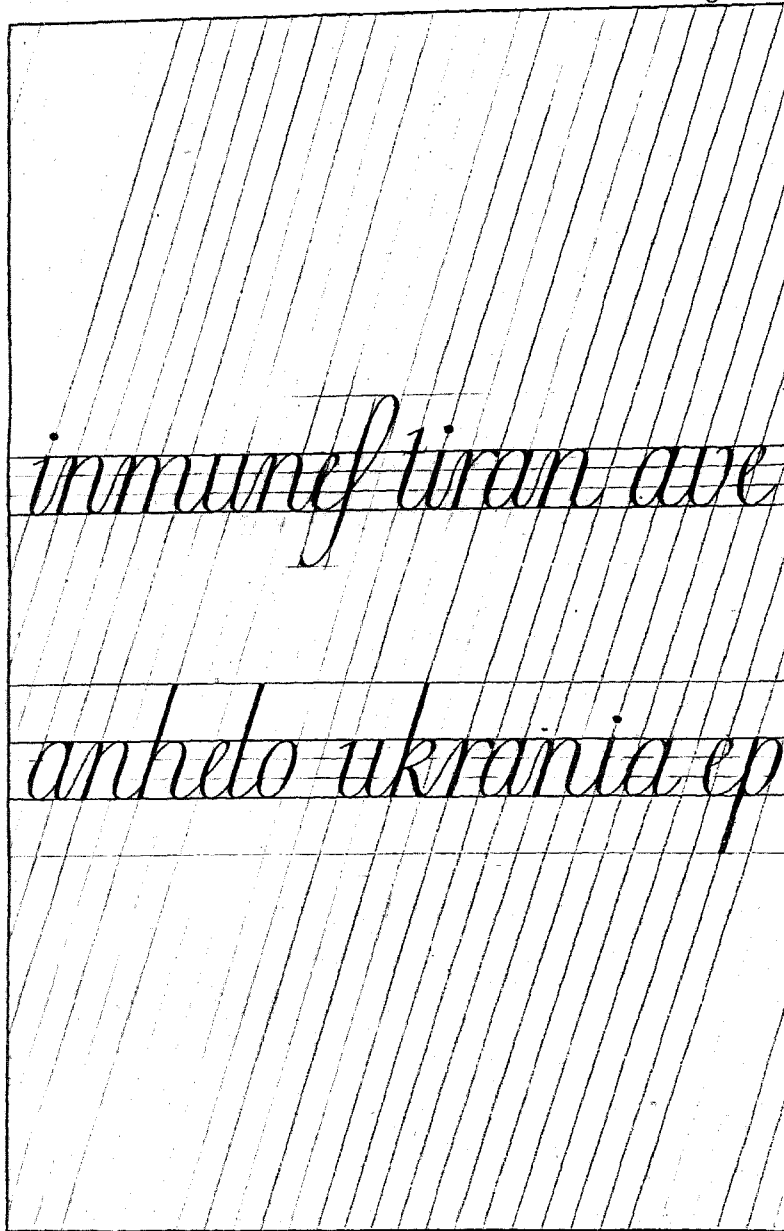 inmunes tiran ave
anhelo ukrania ep